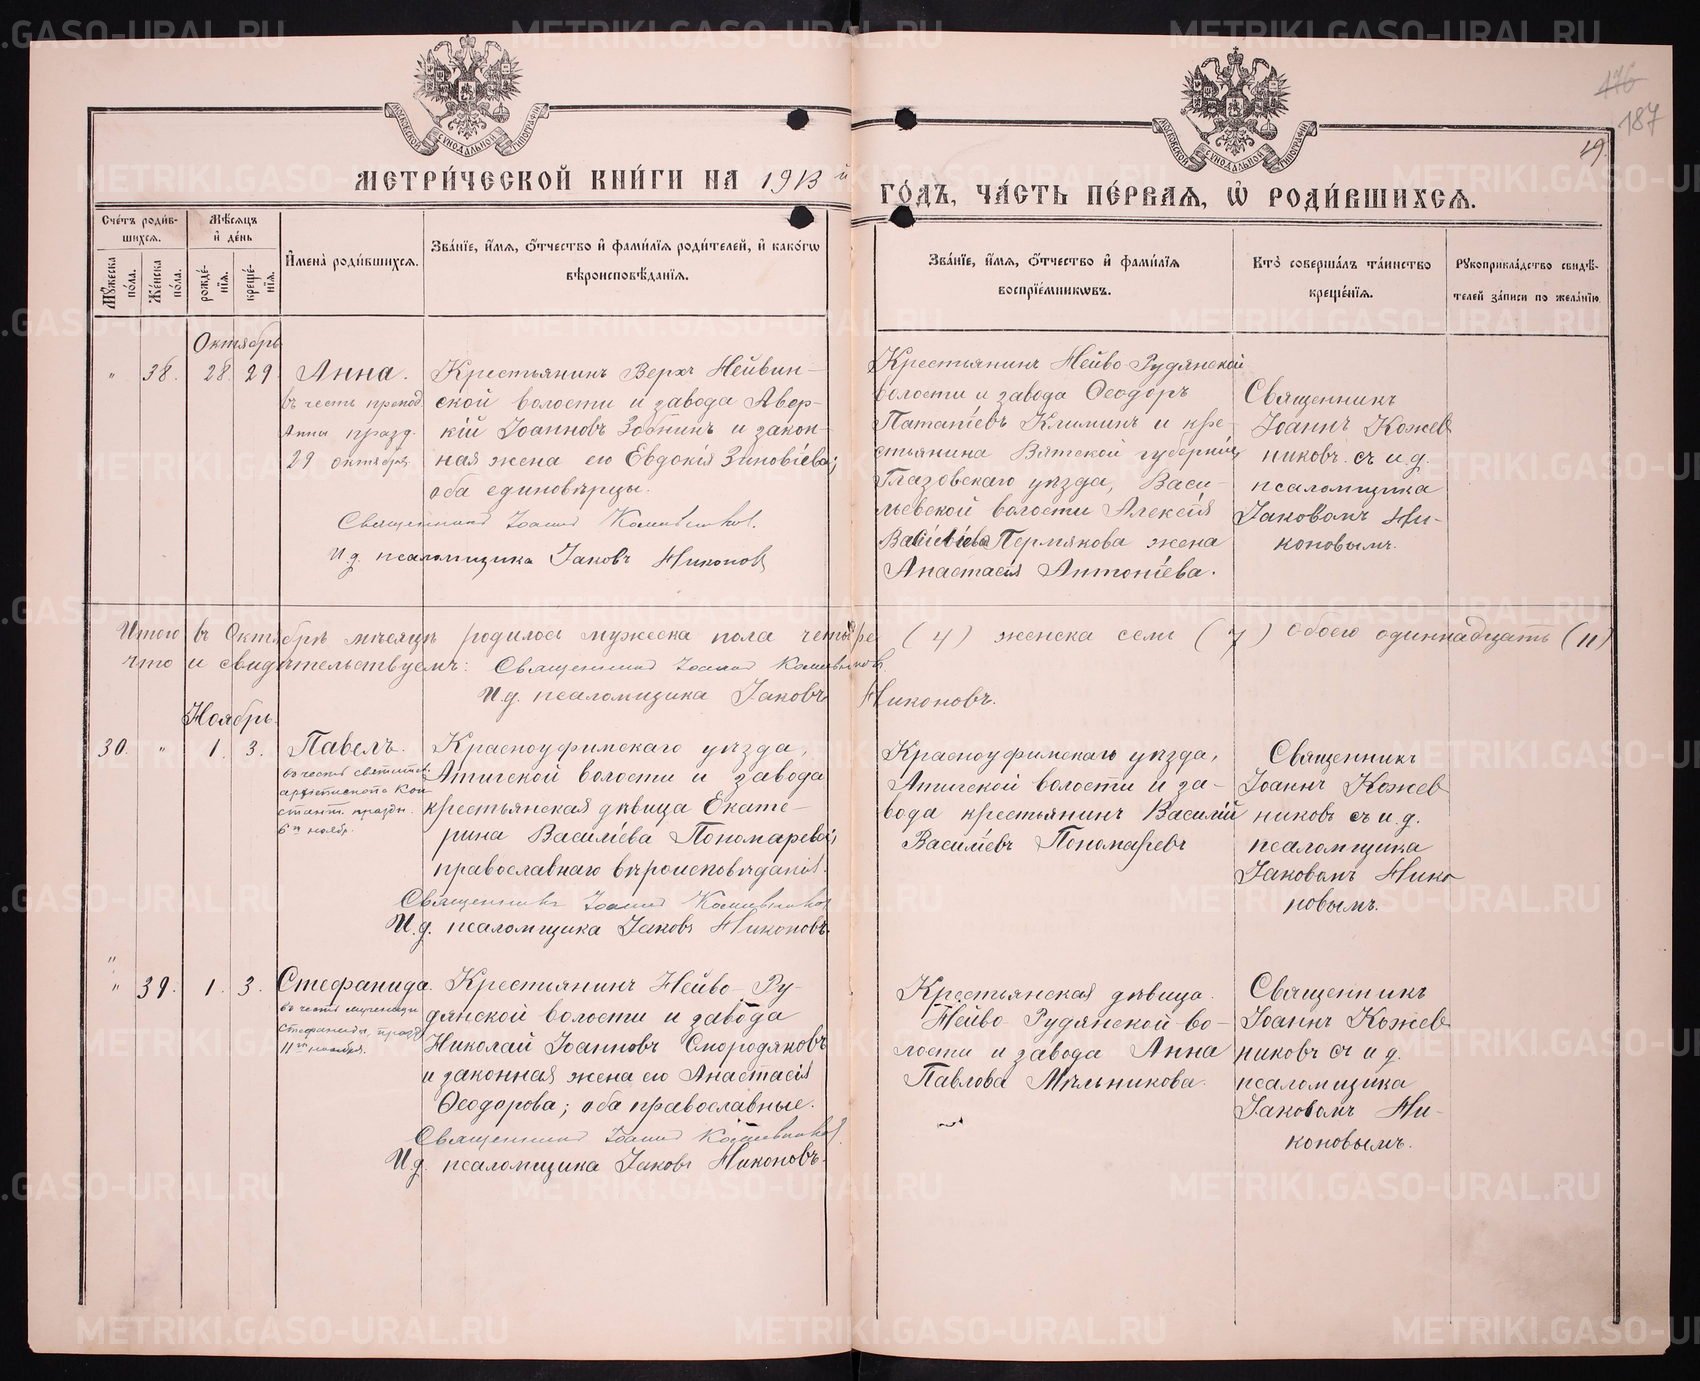 МЕТРИ́ЧЕСКОЙ КНИ́ГИ НА 1913й ГО́ДЪ, ЧА́СТЬ ПЕ́РВАЯ, Ѽ РОДИ́ВШИХСЯ.
187
19
Сче́тъ роди́в-
шихся.
Мꙋ́жеска по́ла.
Же́нска по́ла.
Мѣ́сяцъ и҆ де́нь
рожде́-
нїя.
креще́-
нїя.
И҆мена̀ роди́вшихся.
Зва́нїе, и҆́мя, ѻ҆́тчество и҆ фами́лїя роди́телей, и҆ како́гѡ
вѣроисповѣ́данїя.
Зва́нїе, и҆́мя, ѻ҆́тчество и҆ фами́лїя
воспрїе́мникѡвъ.
Кто̀ соверша́лъ та́инство
креще́нїя.
Рꙋкоприкла́дство свидѣ́-
телей за́писи по жела́нїю.
Октябрь
" 38. 28. 29.
Анна.
въ честь препод.
Анны празд.
29 октября
Крестьянинъ Верхъ Нейвин-
ской волости и завода Авер-
кій Іоанновъ и закон-
ная жена его Евдокія Зиновіева;
оба единовѣрцы.
Священникъ Іоаннъ Кожевниковъ.
И. д. псаломщика Іаковъ Никоновъ
Крестьянинъ Нейво Рудянской
волости и завода Ѳеодоръ
Климинъ и кре-
стьянина Вятской губерніи
Глазовскаго уѣзда, Васи-
льевской волости Алексія
Пермякова жена
Анастасія Антоніева.
Священникъ
Іоаннъ Кожев
никовъ съ и. д.
псаломщика
Іаковомъ Ни-
коновымъ.
Итого въ Октябрѣ мѣсяцѣ родилось мужеска пола четыре (4) женска семь (7) обоего одиннадцать (11)
что и свидѣтельствуемъ: Священникъ Іоаннъ Кожевниковъ
И. д. псаломщика Іаковъ Никоновъ.
Ноябрь.
30. " 1. 3.
Павелъ.
въ честь святит.
архіепископа Кон
стант. праздн.
6го нояб.
Красноуфимскаго уѣзда,
Атигской волости и завода
крестьянская дѣвица Екате-
рина Василіева Пономарева;
православнаго вѣроисповѣданія.
Священникъ Іоаннъ Кожевниковъ
И. д. псаломщика Іаковъ Никоновъ.
Красноуфимскаго уѣзда,
Атигской волости и за-
вода крестьянинъ Василій
Василіевъ Пономаревъ
Священникъ
Іоаннъ Кожев
никовъ съ и. д.
псаломщика
Іаковомъ Нико
новымъ.
"
" 39. 1. 3.
Стефанида.
въ честь мученицы
Стефаниды, празд.
11го ноября.
Крестьянинъ Нейво-Ру-
дянской волости и завода
Николай Іоанновъ Смородяковъ
и законная жена его Анастасія
Ѳеодорова; оба православные.
Священникъ Іоаннъ Кожевниковъ
И. д. псаломщика Іаковъ Никоновъ.
Крестьянская дѣвица
Нейво Рудянской во-
лости и завода Анна
Павлова Мѣльникова.
Священникъ
Іоаннъ Кожев
никовъ съ и д.
псаломщика
Іаковомъ Ни-
коновымъ.
METRIKI.GASO-URAL.RU